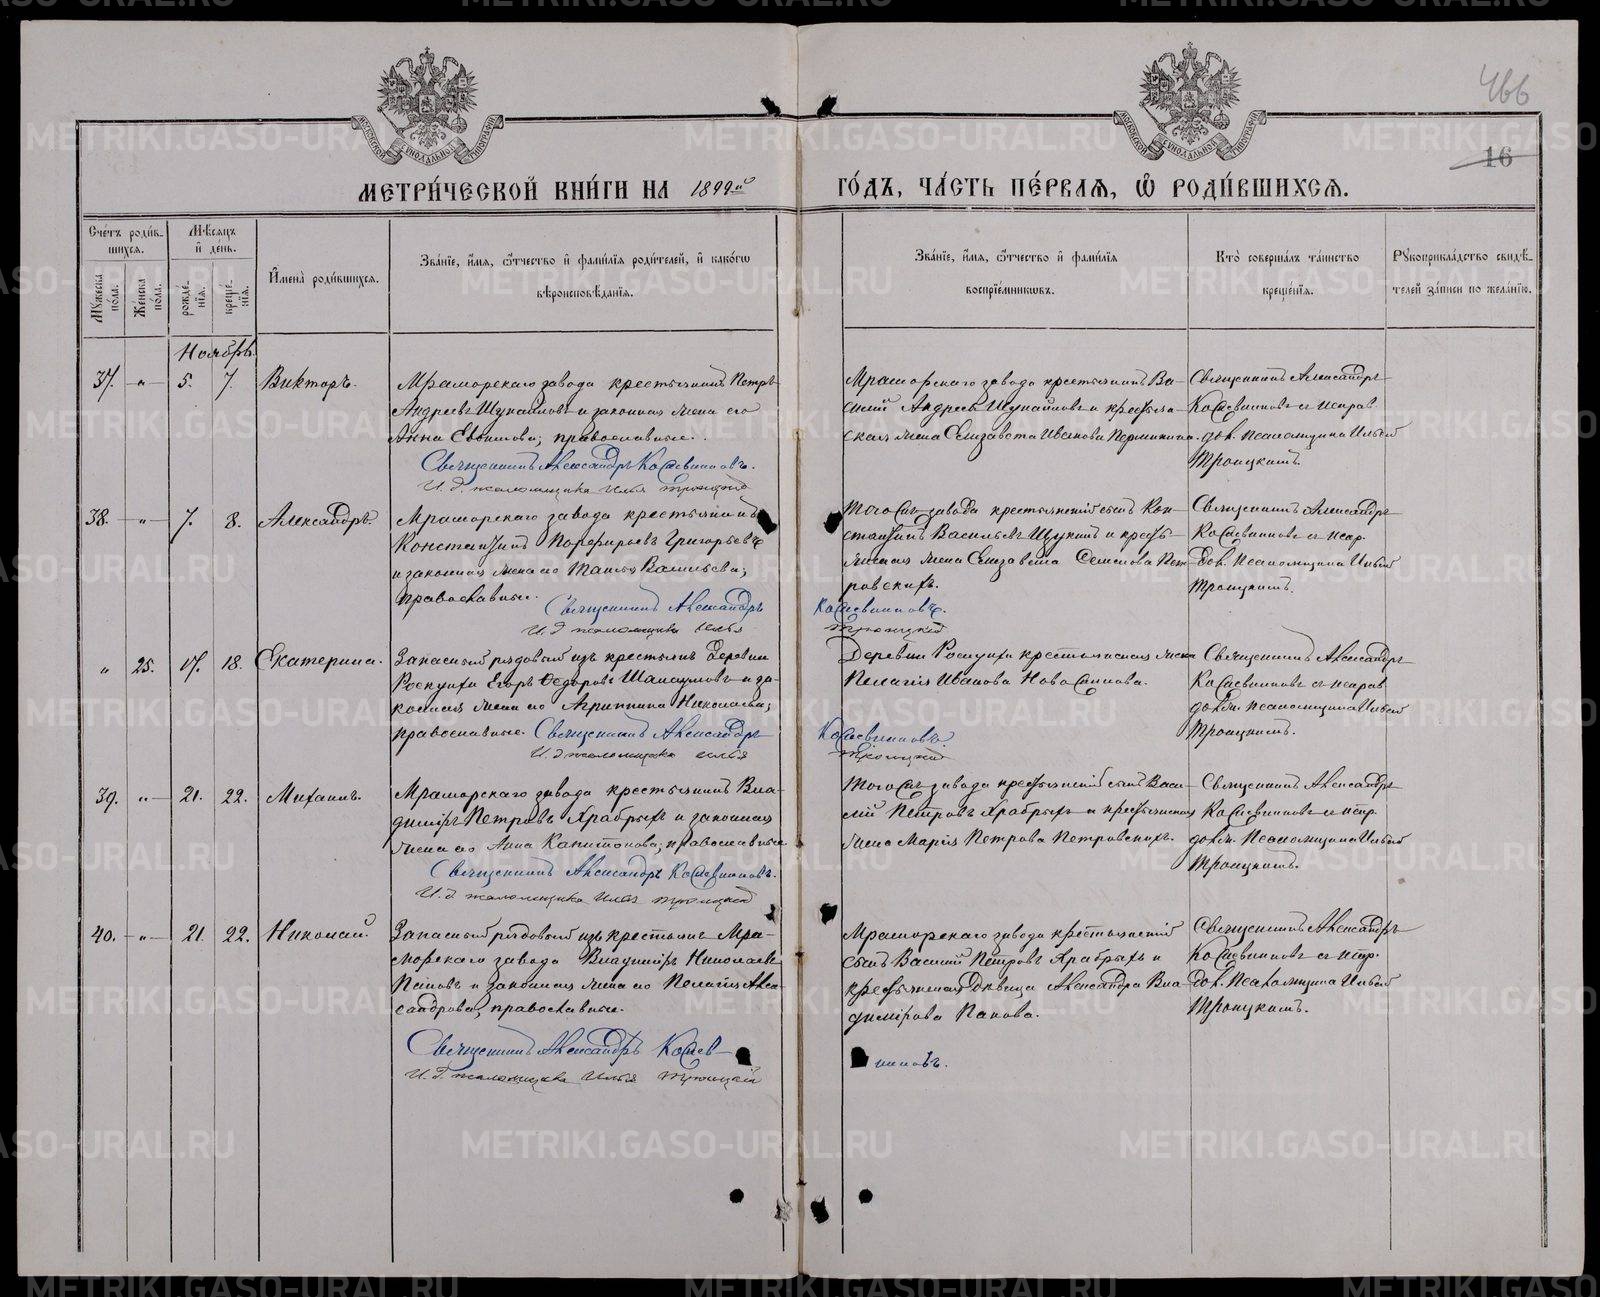 466
16
МЕТРИ́ЧЕСКОЙ КНИ́ГИ НА 1899й ГО́ДЪ, ЧА́СТЬ ПЕ́РВАЯ, Ѽ РОДИ́ВШИХСЯ.
Сче́тъ роди́вшихся.
Му́жеска по́ла.
Же́нска по́ла.
Мѣ́сяцъ и҆ де́нь.
рожде́нїя.
креще́нїя.
И҆мена̀ роди́вшихся.
Зва́нїе, и҆́мя, ѻ҆́тчество и҆ фами́лїя роди́телей, и҆ како́гѡ вѣроисповѣ́данїя.
Зва́нїе, и҆́мя, ѻ҆́тчество и҆ фами́лїя воспрїе́мникѡвъ.
Кто̀ соверша́лъ та́инство креще́нїя.
Рꙋкоприкла́дство свидѣ́телей за́писи по жела́нїю.
Ноябрь
37. „ 5. 7. Викторъ.
Мраморскаго завода крестьянинъ Петръ
Андреевъ Шунайловъ и законная жена его
Анна Евѳимова; православные.
Священникъ Александръ Кожевниковъ.
И. д. псаломщика Илья Троицкій
Мраморскаго завода крестьянинъ Ва-
силій Андреевъ Шунайловъ и крестьян-
ская жена Елизавета Иванова Перминкина.
Священникъ Александръ
Кожевниковъ съ исправ.
дол. Псаломщика Ильей
Троицкимъ.
38. „ 7. 8. Александръ.
Мраморскаго завода крестьянинъ
Константинъ Порфирьевъ Григорьевъ
и законная жена его Татьяна Васильева;
православные.
Священникъ Александръ Кожевниковъ.
И. д. псаломщика Илья Троицкій
Тогожъ завода крестьянскій сынъ Кон-
стантинъ Васильевъ Щукинъ и кресть-
янская жена Елизавета Семенова Пет-
ровскихъ.
Священникъ Александръ
Кожевниковъ съ испр.
дол. Псаломщика Ильей
Троицкимъ.
„ 25. 17. 18. Екатерина.
Запасный рядовый изъ крестьянъ деревни
Роскуихи Егоръ Ѳедоровъ и за-
конная жена его Агриппина Николаева;
православные.
Священникъ Александръ Кожевниковъ.
И. д. псаломщика Илья Троицкій
Деревни Роскуихи крестьянская жена
Пелагія Иванова Новоселова.
Священникъ Александръ
Кожевниковъ съ исправ.
долж. Псаломщика Ильей
Троицкимъ.
39. „ 21. 22. Михаилъ.
Мраморскаго завода крестьянинъ Вла-
диміръ Петровъ Храбрыхъ и законная
жена его Анна Капитонова; православные
Священникъ Александръ Кожевниковъ.
И. д. псаломщика Илья Троицкій
Тогожъ завода крестьянскій сынъ Васи-
лій Петровъ Храбрыхъ и крестьянская
жена Марія Петрова Петровскихъ.
Священникъ Александръ
Кожевниковъ съ испр.
долж. Псаломщика Ильей
Троицкимъ.
40. „ 21. 22. Николай.
Запасный рядовый изъ крестьянъ Мра-
морскаго завода Владиміръ Николаевъ
Поповъ и законная жена его Пелагія Алек-
сандрова; православные.
Священникъ Александръ Кожевниковъ.
И. д. псаломщика Илья Троицкій
Мраморскаго завода крестьянскій
сынъ Василій Петровъ Храбрыхъ и
крестьянская дѣвица Александра Вла-
димірова Попова.
Священникъ Александръ
Кожевниковъ съ испр.
дол. Псаломщика Ильей
Троицкимъ.
METRIKI.GASO-URAL.RU